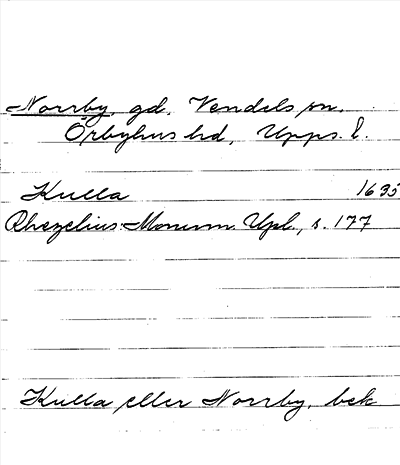 Norrby, gd, Vendels sn,
Örbyhus hd, Upps. l.
Kulla 1635
Rhezelius Monum. Upl., s. 177
Kulla eller Norrby, bek